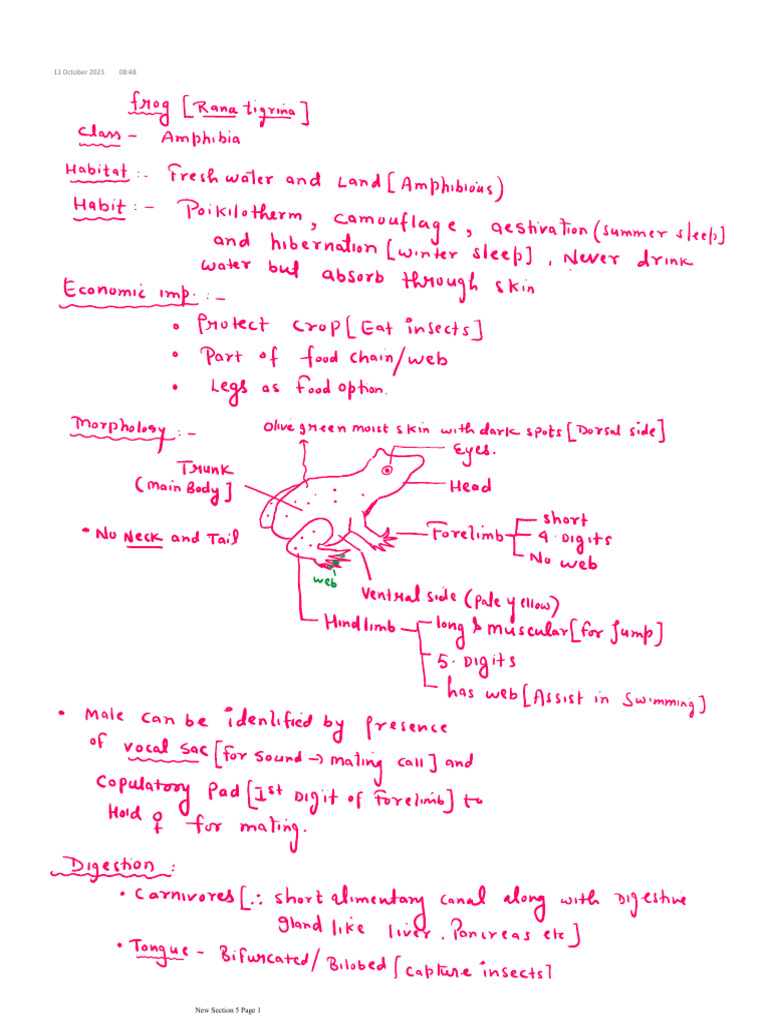 11 October 2023 08:48
frog [Rana tigrina]
Class - Amphibia
Habitat :- Fresh water and Land [Amphibious)
Habit :- Poikilotherm, camouflage, aestivation (summer sleep]
and hibernation [winter sleep], Never drink
water but absorb through skin
Economic imp. :-
• Protect crop [Eat insects]
• Part of food chain/web
• Legs as food option.
Morphology :-
Olive green moist skin with dark spots [Dorsal side]
Eyes.
Trunk
(Main Body]
Head
• No Neck and Tail
Forelimb
short
4. Digits
No web
web
Ventral side (pale yellow)
Hindlimb
long & muscular [for Jump]
5. Digits
has web [Assist in swimming]
• Male can be identified by presence
of vocal sac [for sound → mating call] and
Copulatory Pad [1st Digit of Forelimb] to
Hold ♀ for mating.
Digestion :
• Carnivores [∴ short alimentary canal along with Digestive
gland like liver, Pancreas etc]
• Tongue - Bifurcated/Bilobed [capture insects]
New Section 5 Page 1